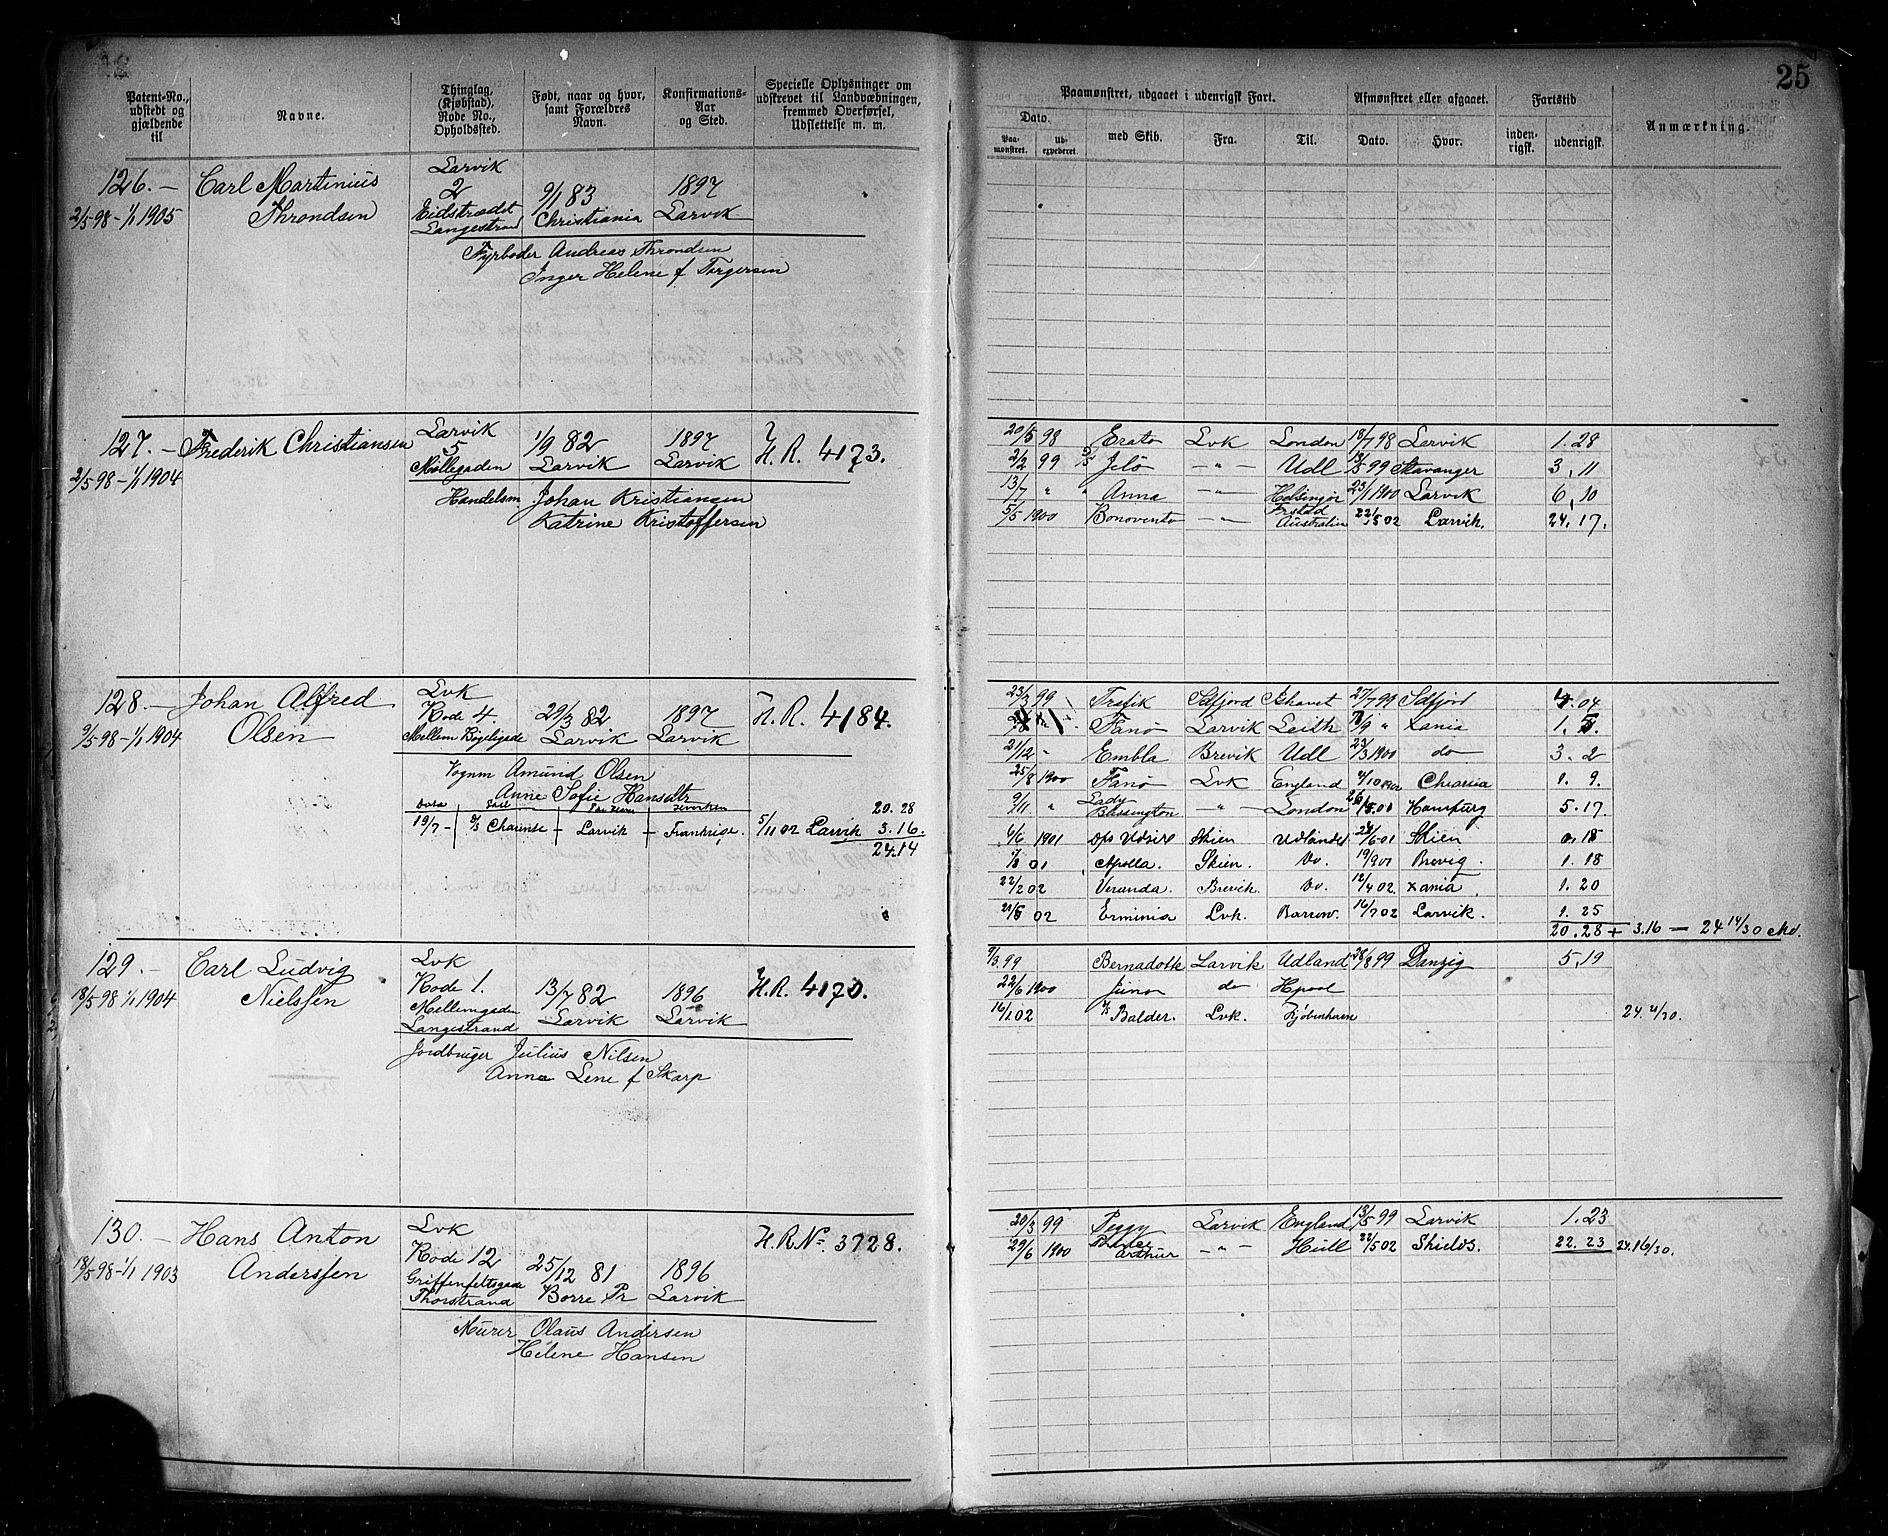 25
Patent-No., udstedt og gjældende til
Navne.
Thinglag, (Kjøbstad), Rode No., Opholdssted.
Født, naar og hvor, samt Forældres Navn.
Konfirmations-Aar og Sted.
Specielle Oplysninger om udskrevet til Landvæbningen, fremmed Overførsel, Udslettelse m. m.
Paamønstret, udgaaet i udenrigsk Fart.
Afmønstret eller afgaaet.
Fartstid
Anmærkning.
Dato.
Paa-mønstret.
Ud-expederet.
med Skib.
Fra.
Til.
Dato.
Hvor.
inden-rigsk.
udenrigsk.
126. — Carl Martinius Larvik
2 9/1 83 1897
2/5 98 – 1/1 1905 Throndsen Eidstrædet Christiania Larvik
Langestrand
Fyrbøder Andreas Throndsen
Inger Helene f Torgersen
127. — Fredrik Christiansen Larvik 5 1/9 82 1897 H. R. 4173.
2/5 98 – 1/1 1904 Møllegaden Larvik Larvik
Handelsm Johan Kristiansen
Katrine Kristoffersen
20/5 98 Erato Lvk London 18/7 98 Larvik 1.28
2/2 99 Jelø — " — Udl 99 Stavanger 3.11
13/7 " " Anna — " — Helsingør 23/1 1900 Larvik 6.10
5/5 1900 Bonovento — " — Australien 22/5 02 Larvik. 24.17.
128. — Johan Alfred Lvk
Rode 4. 29/3 82 1897 H. R. 4184.
9/5 98 – 1/1 1904 Olsen Mellem Bøgeligade Larvik Larvik
Vognm Amund Olsen
Anne Sofie Hansdtr
20.28
19/7 – Charente – Larvik – Frankrige. 5/11 02 Larvik 3.16.
24.14
23/3 99 Trafik Sdfjord Ghavet 27/7 99 Sdfjord 4.04
Fanø Larvik Leith 7/9 " Xania 1.
21/12 – Embla Brevik Udl 23/3 1900 do 3.2
25/8 1900 Fanø Lvk England Chrania 1.9.
9/11 " Lady Blessington — " — London 01 Hamburg 5.17.
4/6 1901 Udsire Skien Udlandet 01 Skien 0.18
01 Apolla. Skien. Do. 19/9 01 Brevig. 1.18
22/2 02 Veranda. Brevik. Do. 12/4 02 Xania. 1.20
02 Erminia Lvk. Barrow. 16/7 02 Larvik. 1.25
20.28 + 3.16 — 24 14/30 Md.
129. — Carl Ludvig Lvk
Rode 1. 13/7 82 1896 H. R. 4170.
18/5 98 1/1 1904 Nielssen Mellemgaden Larvik Larvik
Langestrand
Jordbruger Julius Nilsen
Anne Lene f Skarp
9/3 99 Bernadotte Larvik Udland 28/8 99 Danzig 5.19
22/6 1900 Juno do Hpool
16/1 02 Balder. Lvk. Kjøbenhavn
130. — Hans Anton Lvk
Rode 12 25/12 81 1896 H. R No. 3728.
18/5 98 – 1/1 1903 Anderssen Griffenfeltsgade Borre Pr Larvik
Thorstrand
Murer Olaus Andersen
Helene Hansen
20/3 99 Peggy Larvik England 13/5 99 Larvik 1.23
29/6 1900 Prince Arthur — " — Hull 22/5 02 Shields. 22.23 24.16/30.